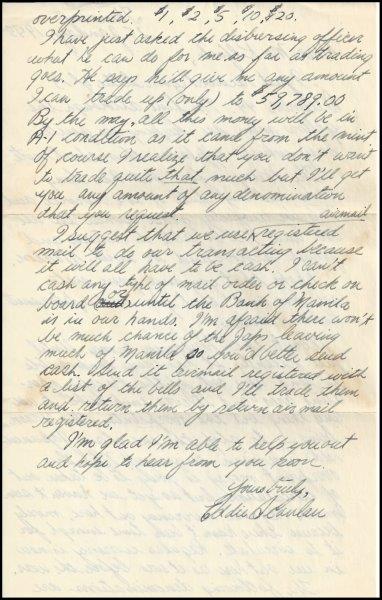 overprinted. $1, $2, $5, $10, $20.
I have just asked the disbursing officer
what he can do for me as far as trading
goes. He says he'll give me any amount
I can trade up (only) to $59,789.00
By the way, all this money will be in
A-1 condition as it came from the mint
Of course I realize that you don't want
to trade quite that much but I'll get
you any amount of any denomination
that you request.
airmail
I suggest that we use registered
mail to do our transacting because
it will all have to be cash. I can't
cash any type of mail order or check on
board or until the Bank of Manila
is in our hands. I'm afraid there won't
be much chance of the Japs leaving
much of Manila so you'd better send
cash. Send it airmail registered with
a list of the bills and I'll trade them
and return them by return air mail
registered.
I'm glad I'm able to help you out
and hope to hear from you soon.
Yours truly,
Eddie